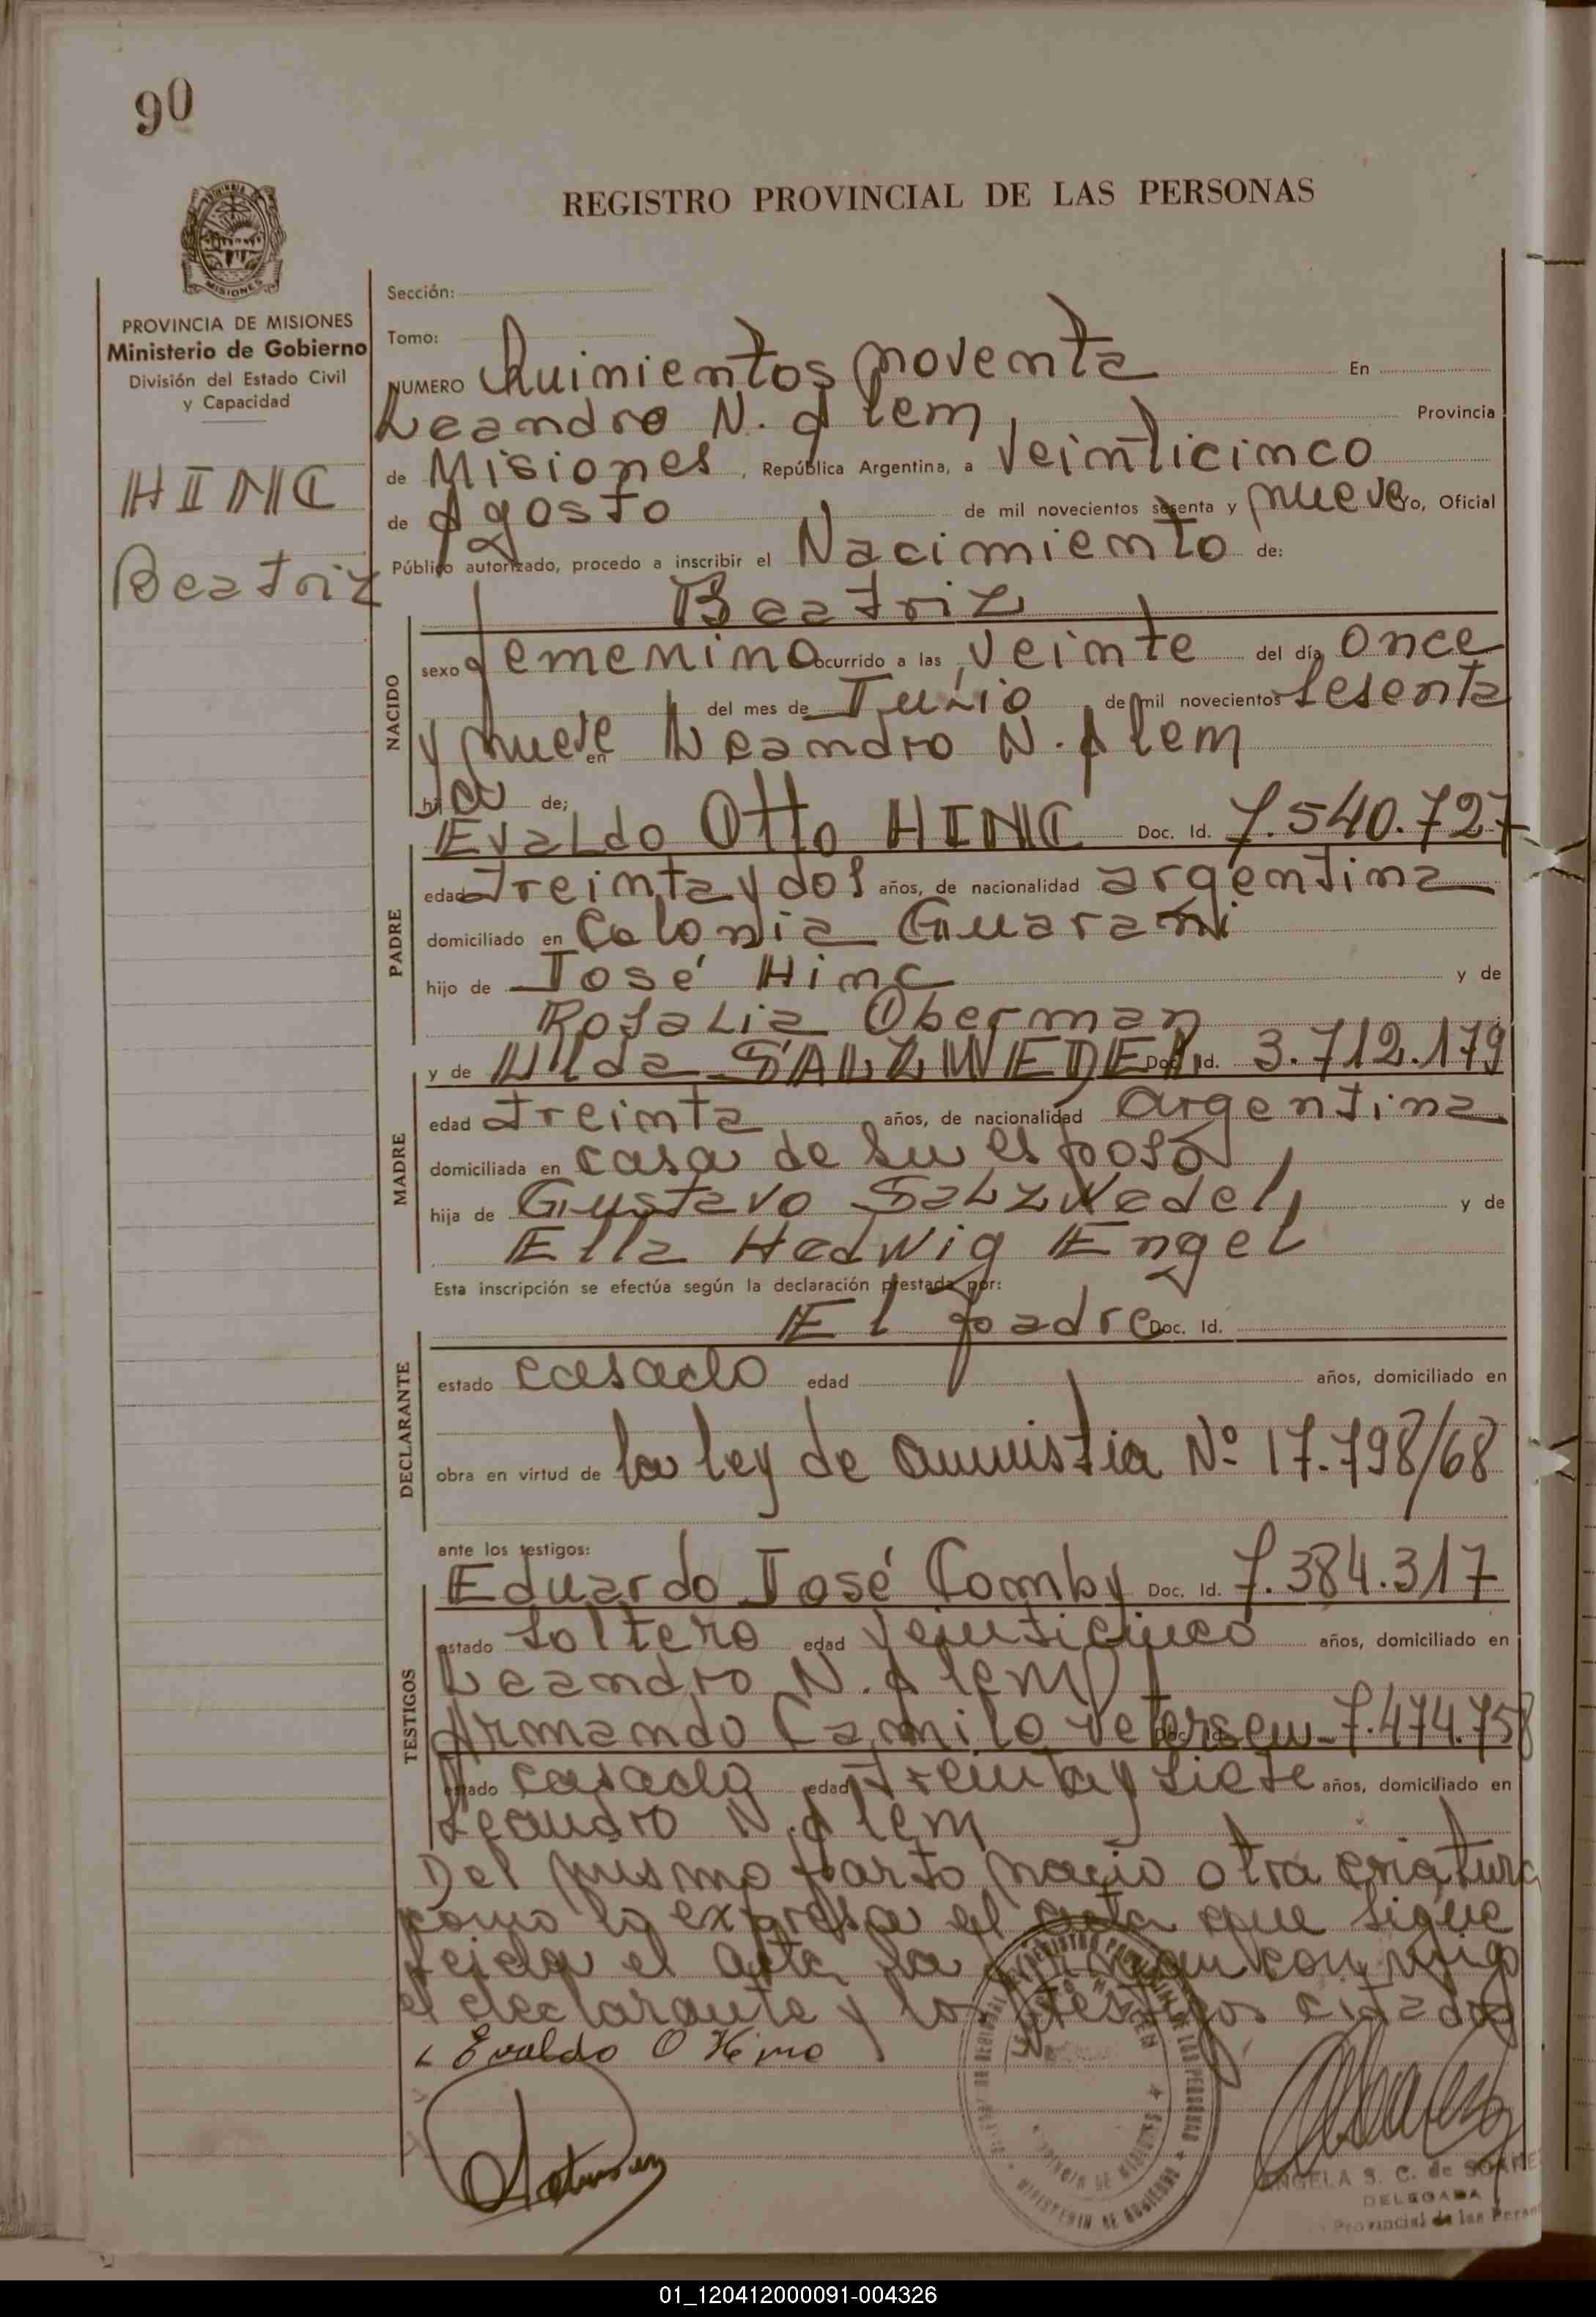 90
REGISTRO PROVINCIAL DE LAS PERSONAS
MISIONES
PROVINCIA DE MISIONES
Ministerio de Gobierno
División del Estado Civil
y Capacidad
HINC
Beatriz
Sección:
Tomo:
NUMERO Quinientos noventa En
Leandro N. Alem, Provincia
de Misiones, República Argentina, a Veinticinco
de Agosto de mil novecientos sesenta y nueve yo, Oficial
Público autorizado, procedo a inscribir el Nacimiento de:
Beatriz
NACIDO
sexo femenino ocurrido a las veinte del día once
del mes de Julio de mil novecientos sesenta
y nueve en Leandro N. Alem
hija de;
Evaldo Otto HINC Doc. Id. 7.540.727
PADRE
edad treinta y dos años, de nacionalidad argentina
domiciliado en Colonia Guarani
hijo de José Hinc y de
Rosalia Oberman
y de Ilda SALZWEDEL Doc. Id. 3.712.179
MADRE
edad treinta años, de nacionalidad argentina
domiciliada en casa de su esposo
hija de Gustavo Salzwedel, y de
Ella Hedwig Engel
Esta inscripción se efectúa según la declaración prestada por:
El padre Doc. Id.
DECLARANTE
estado casado edad años, domiciliado en
obra en virtud de la ley de amnistia Nº 17.798/68
ante los testigos:
Eduardo José Comby Doc. Id. 7.384.317
TESTIGOS
estado soltero edad veinticinco años, domiciliado en
Leandro N. Alem
Armando Camilo Petersen - 7.474.758
estado casado edad treinta y siete años, domiciliado en
Leandro N. Alem
Del mismo parto nació otra criatura
como lo expresa el acta que sigue
leida el acta la firman conmigo
el declarante y los testigos citados
Evaldo O Hinc
ANGELA S. C. de SOARE
DELEGADA
Provincial de las Person
01_120412000091-004326